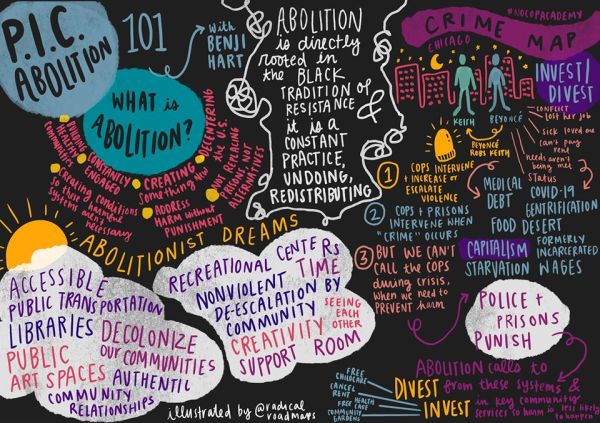 P.I.C.
ABOLITION
101
with
BENJI
HART
WHAT is
ABOLITION?
BUILDING
HEALTHY
COMMUNITIES
CONSTANTLY
ENGAGED
Creating conditions
so these
systems aren't
necessary
CREATING
Something new
ADDRESS
HARM without
PUNISHMENT
DECENTERING
the U.S.
NOT REPLACING
PRISON with
ALTERNATIVES
ABOLITION
is directly
rooted in
the BLACK
TRADITION of
RESISTANCE
&
it is a
CONSTANT
PRACTICE,
UNDOING,
REDISTRIBUTING
CRIME MAP
#NOCOPACADEMY
CHICAGO
KEITH
BEYONCÉ
BEYONCÉ
ROBS KEITH
INVEST/
DIVEST
CONFLICT
lost her job
sick loved one
can't pay
rent
needs aren't
being met
Status
1 COPS INTERVENE
+ INCREASE or
ESCALATE
VIOLENCE
2 COPS + PRISONS
INTERVENE WHEN
"CRIME" OCCURS
3 BUT WE CAN'T
CALL the COPS
during CRISIS,
when we need to
PREVENT harm
MEDICAL
DEBT
COVID-19
GENTRIFICATION
FOOD DESERT
CAPITALISM
STARVATION
FORMERLY
INCARCERATED
WAGES
POLICE +
PRISONS
PUNISH
ABOLITIONIST DREAMS
ACCESSIBLE
PUBLIC TRANSPORTATION
LIBRARIES
DECOLONIZE
OUR COMMUNITIES
PUBLIC
ART SPACES
AUTHENTIC
COMMUNITY
RELATIONSHIPS
RECREATIONAL CENTERS
TIME
NONVIOLENT
DE-ESCALATION BY
COMMUNITY
SEEING
EACH
OTHER
CREATIVITY
SUPPORT ROOM
illustrated by @radical
roadmaps
FREE
CHILDCARE
CANCEL
RENT
FREE HEALTH
CARE
COMMUNITY
GARDENS
ABOLITION calls to
DIVEST from these systems &
INVEST in key community
services so harm is less likely
to happen